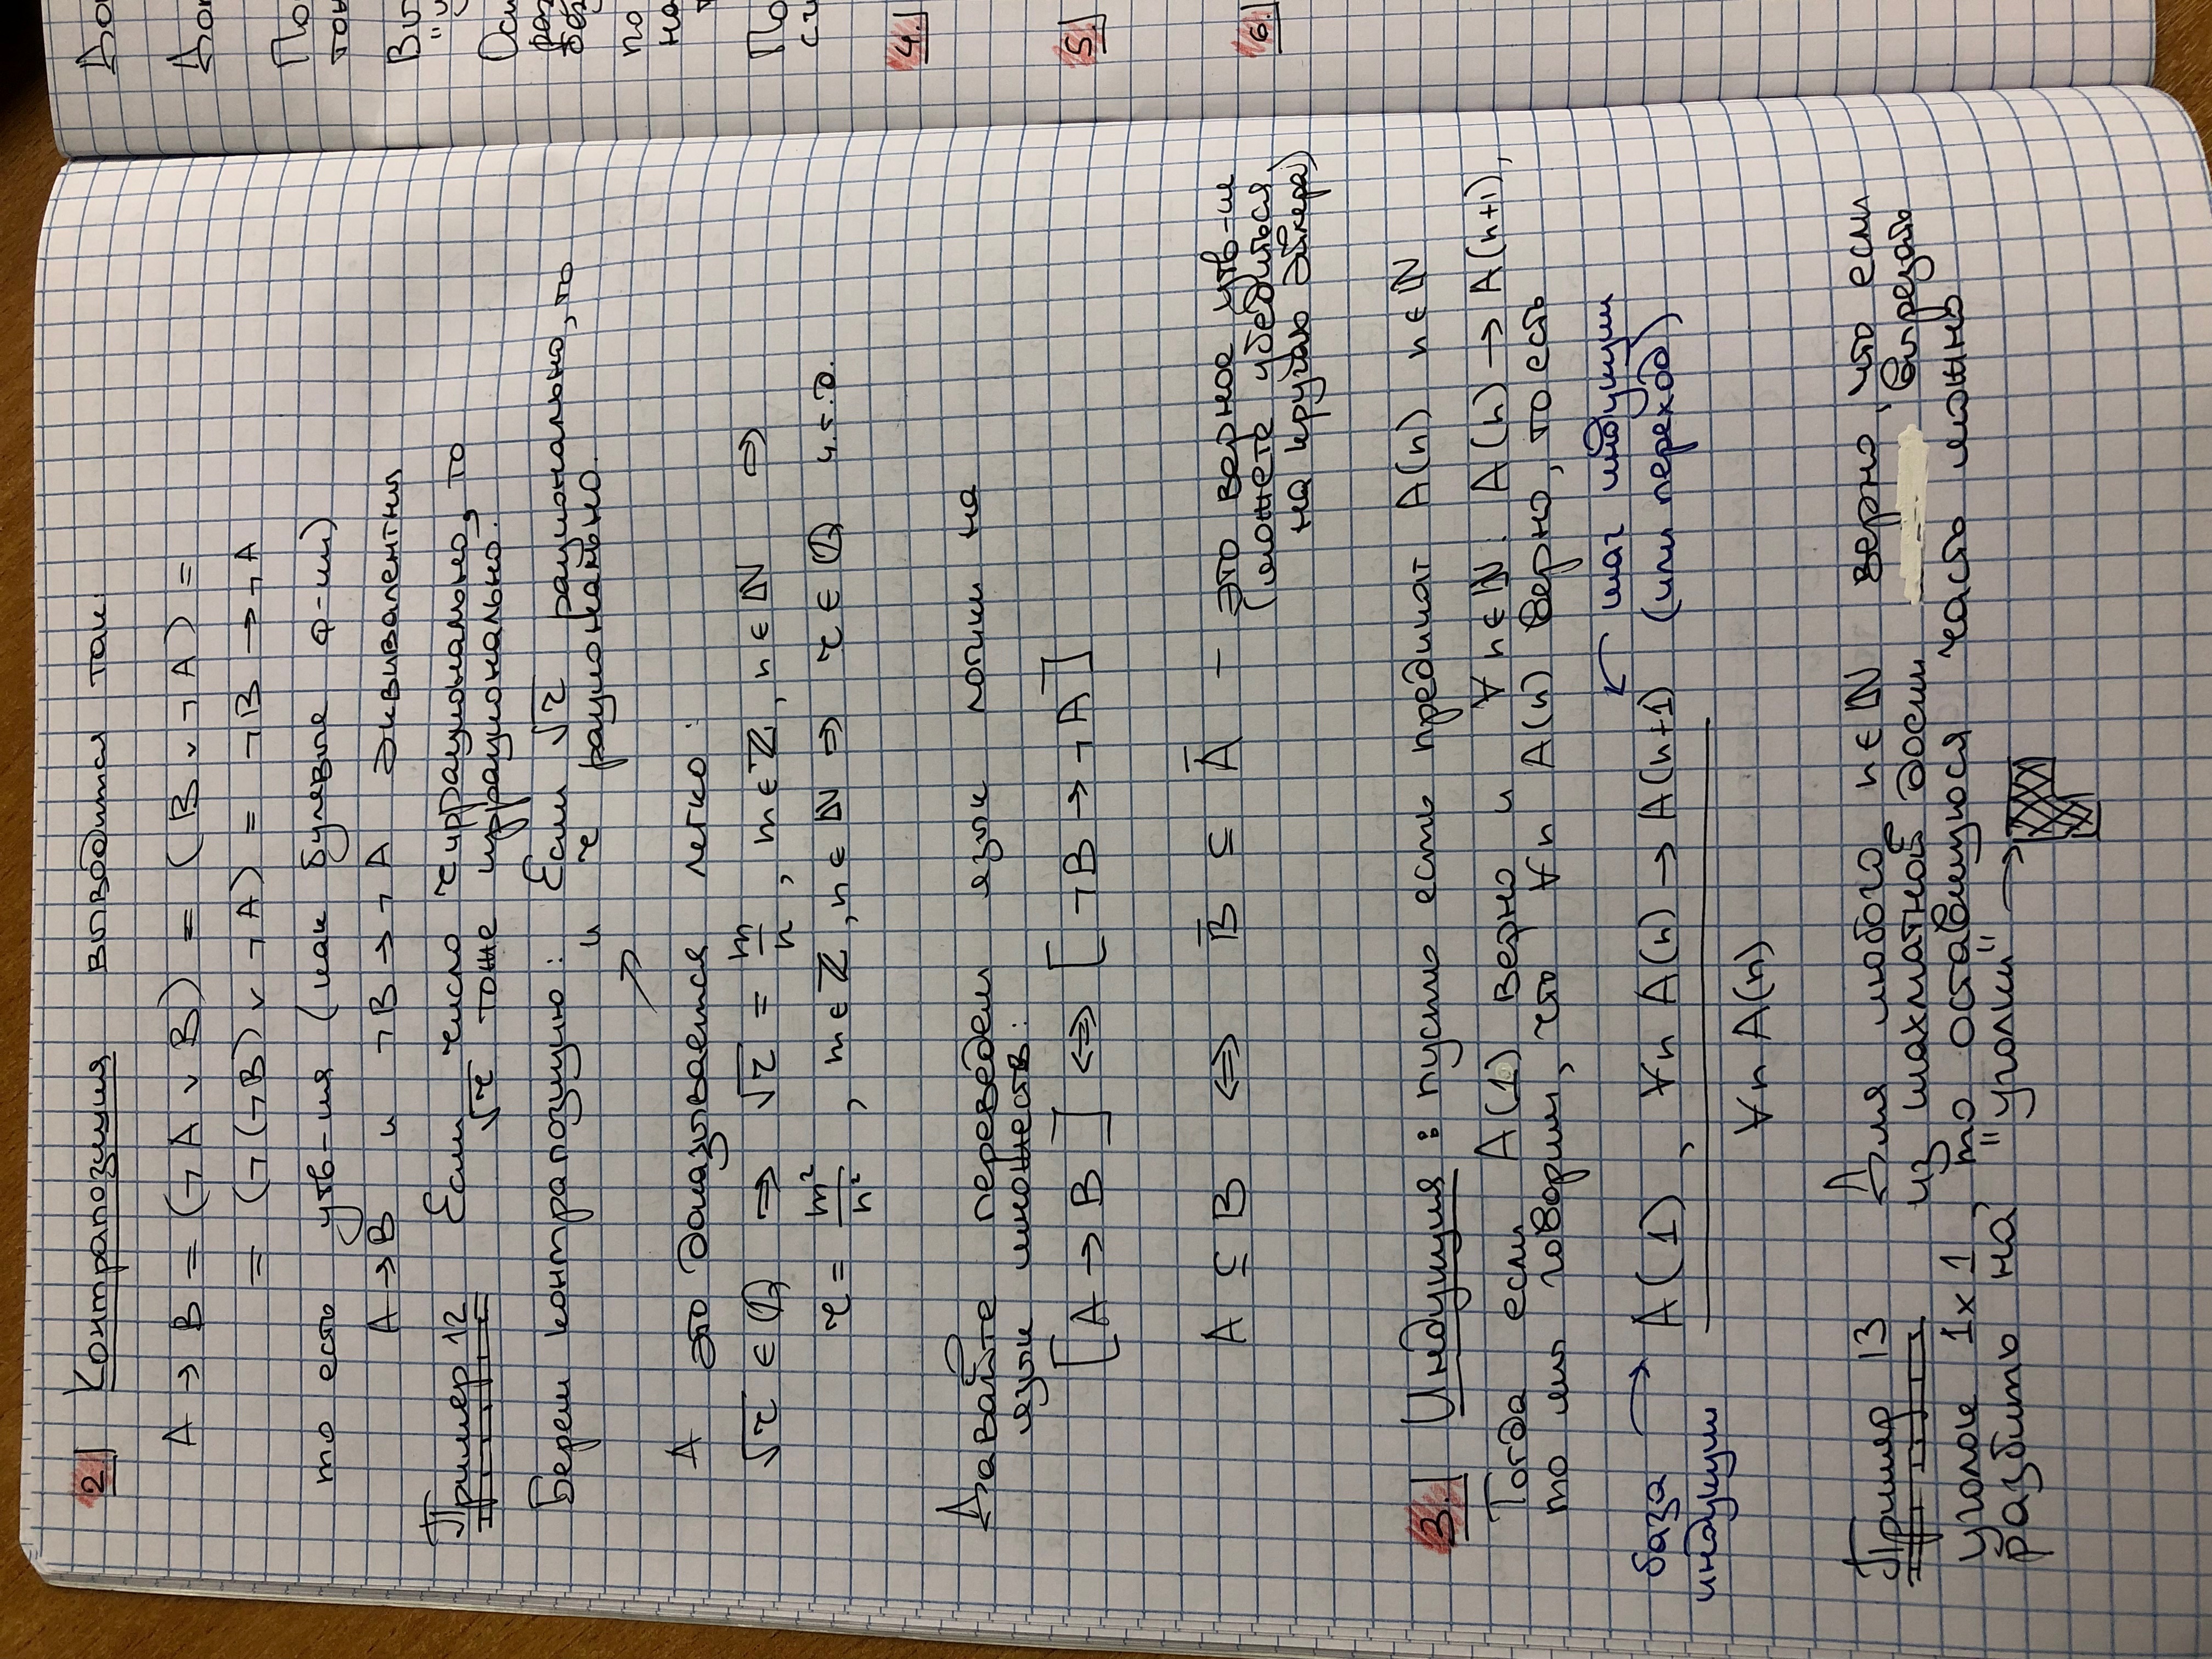 2.] Контрапозиция выводится так:
A → B = (¬ A ∨ B) = (B ∨ ¬ A) =
= (¬(¬B) ∨ ¬A) = ¬B → ¬A
то есть утв-ия (как булевые ф-ии)
A → B и ¬B → ¬A эквивалентны
Пример 12 Если число r иррационально, то
√r тоже иррационально.
Берем контрапозицию: Если √r рационально, то
и r рационально.
А это доказывается легко:
√r ∈ ℚ ⇒ √r = m/n, m ∈ ℤ, n ∈ ℕ ⇒
r = m²/n², m ∈ ℤ, n ∈ ℕ ⇒ r ∈ ℚ ч.т.д.
Давайте переведем язык логики на
язык множеств:
[A → B] ⇔ [¬B → ¬A]
A ⊆ B ⇔ B̅ ⊆ A̅ – это верное утв-ие
(можете убедиться
на кругах Эйлера)
3.] Индукция: пусть есть предикат A(n) n ∈ ℕ
Тогда если A(1) верно и ∀n ∈ ℕ: A(n) → A(n+1),
то мы говорим, что ∀n A(n) верно, то есть
шаг индукции
база A(1), ∀n A(n) → A(n+1) (или переход)
индукции
∀n A(n)
Пример 13 Для любого n ∈ ℕ верно, что если
из шахматной доски вырезать
уголок 1x1, то оставшуюся часть можно
разбить на "уголки" →
4.]
5.]
6.]